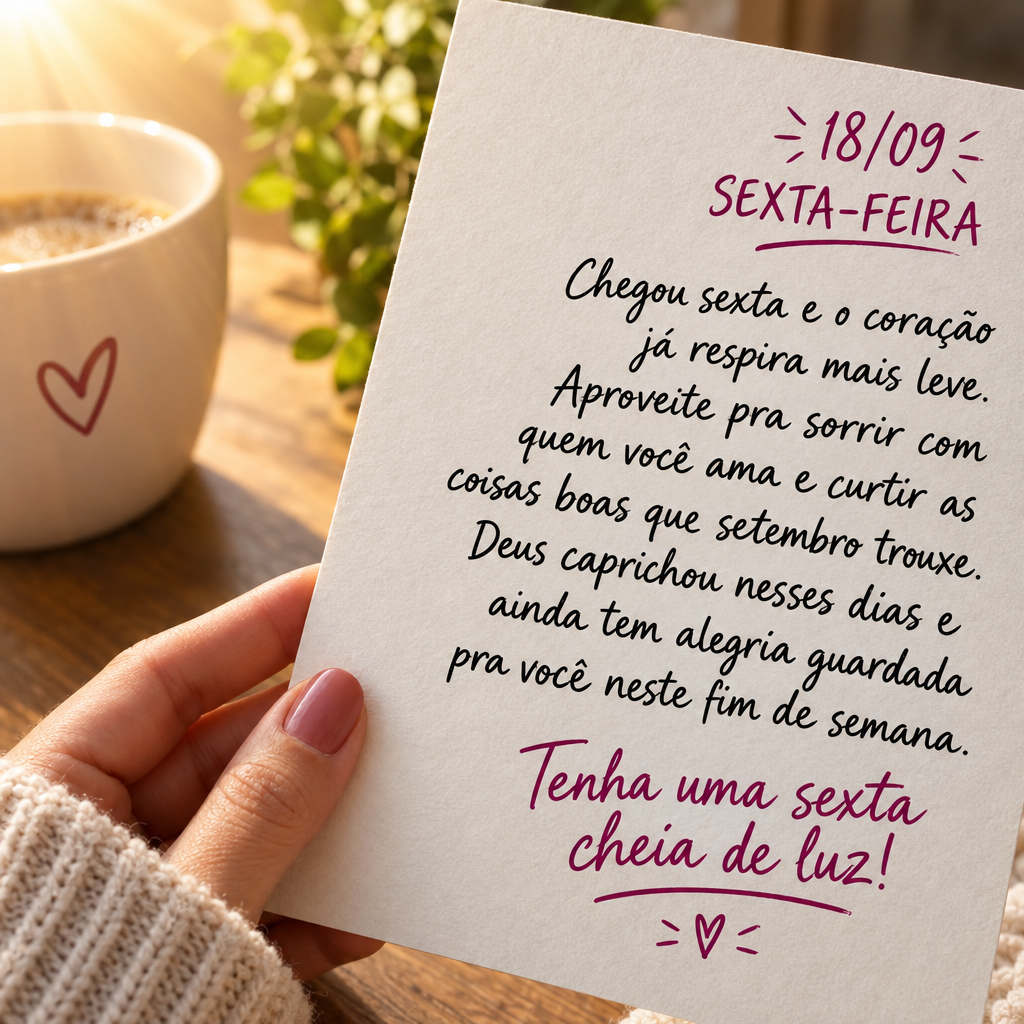 18/09
SEXTA-FEIRA
Chegou sexta e o coração
já respira mais leve.
Aproveite pra sorrir com
quem você ama e curtir as
coisas boas que setembro trouxe.
Deus caprichou nesses dias e
ainda tem alegria guardada
pra você neste fim de semana.
Tenha uma sexta
cheia de luz!